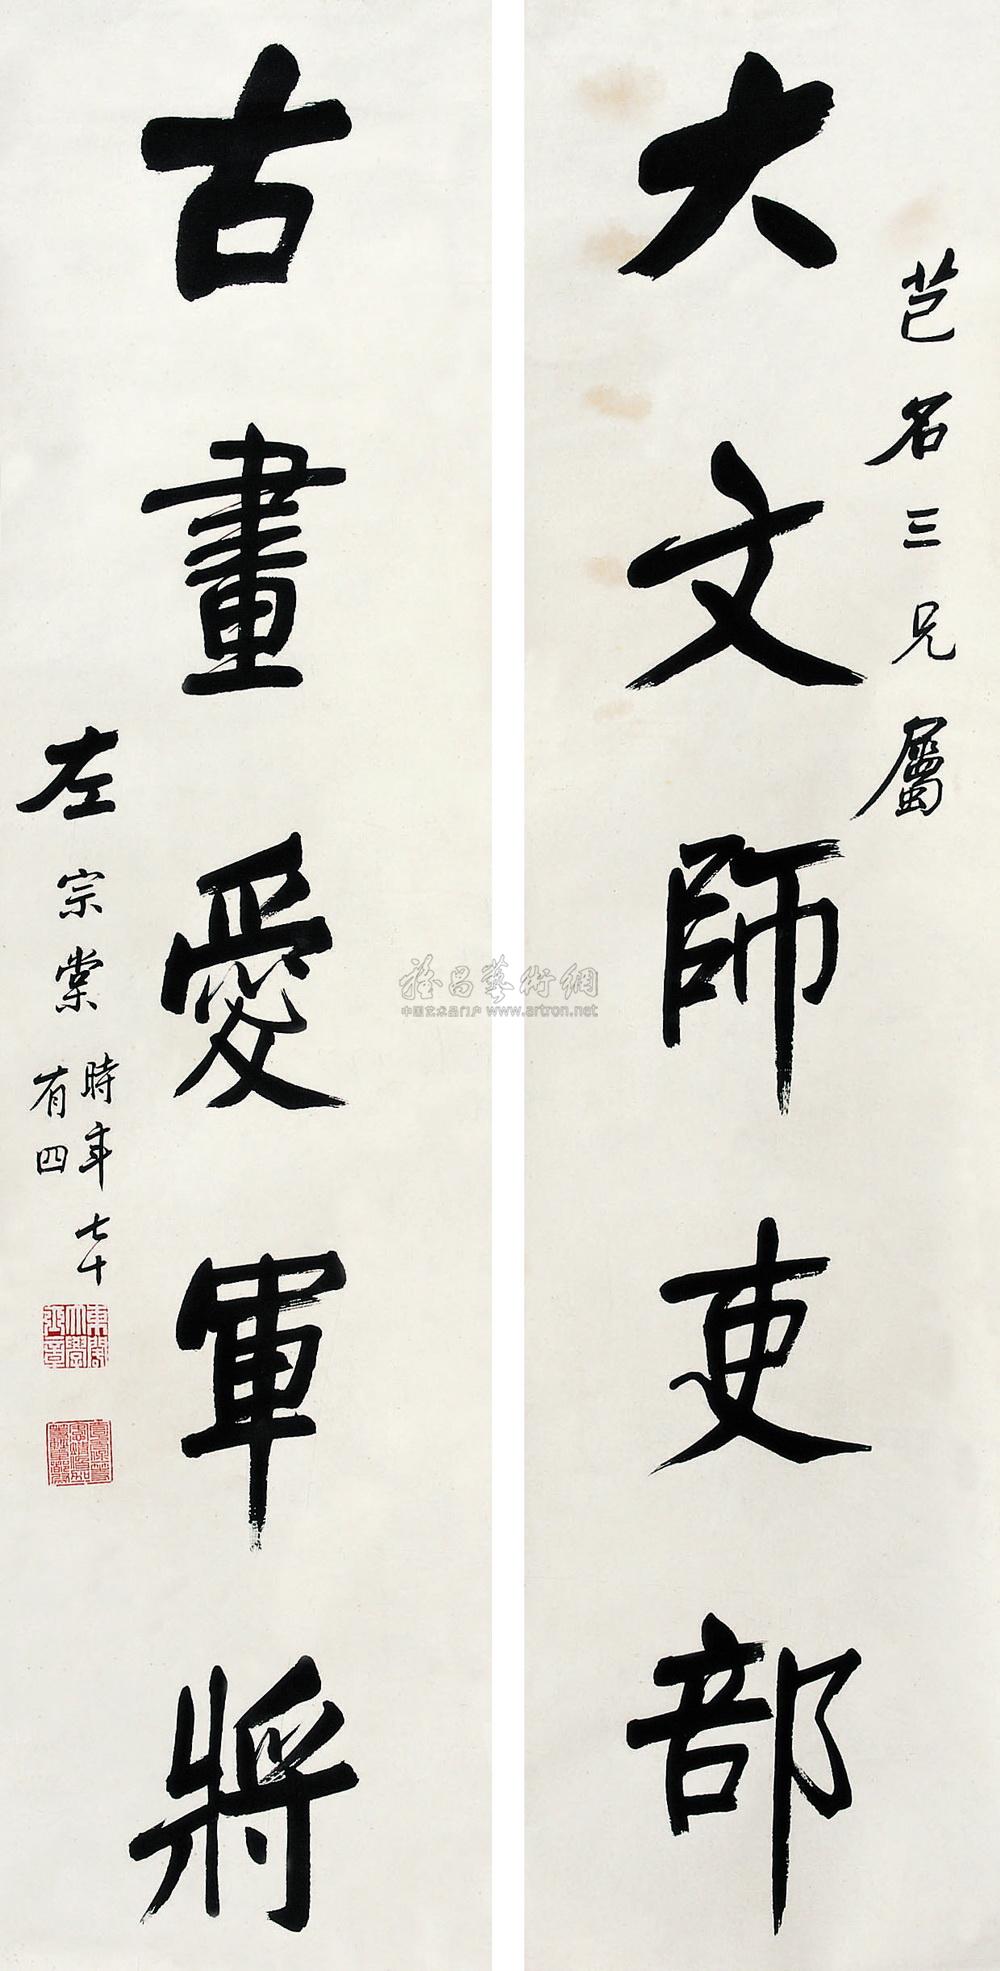 芑名三兄屬
大文師吏部
古畫愛軍將
左宗棠
時年七十
有四
東閣
大學
士章
雅昌藝術網
中国艺术品门户 www.artron.net